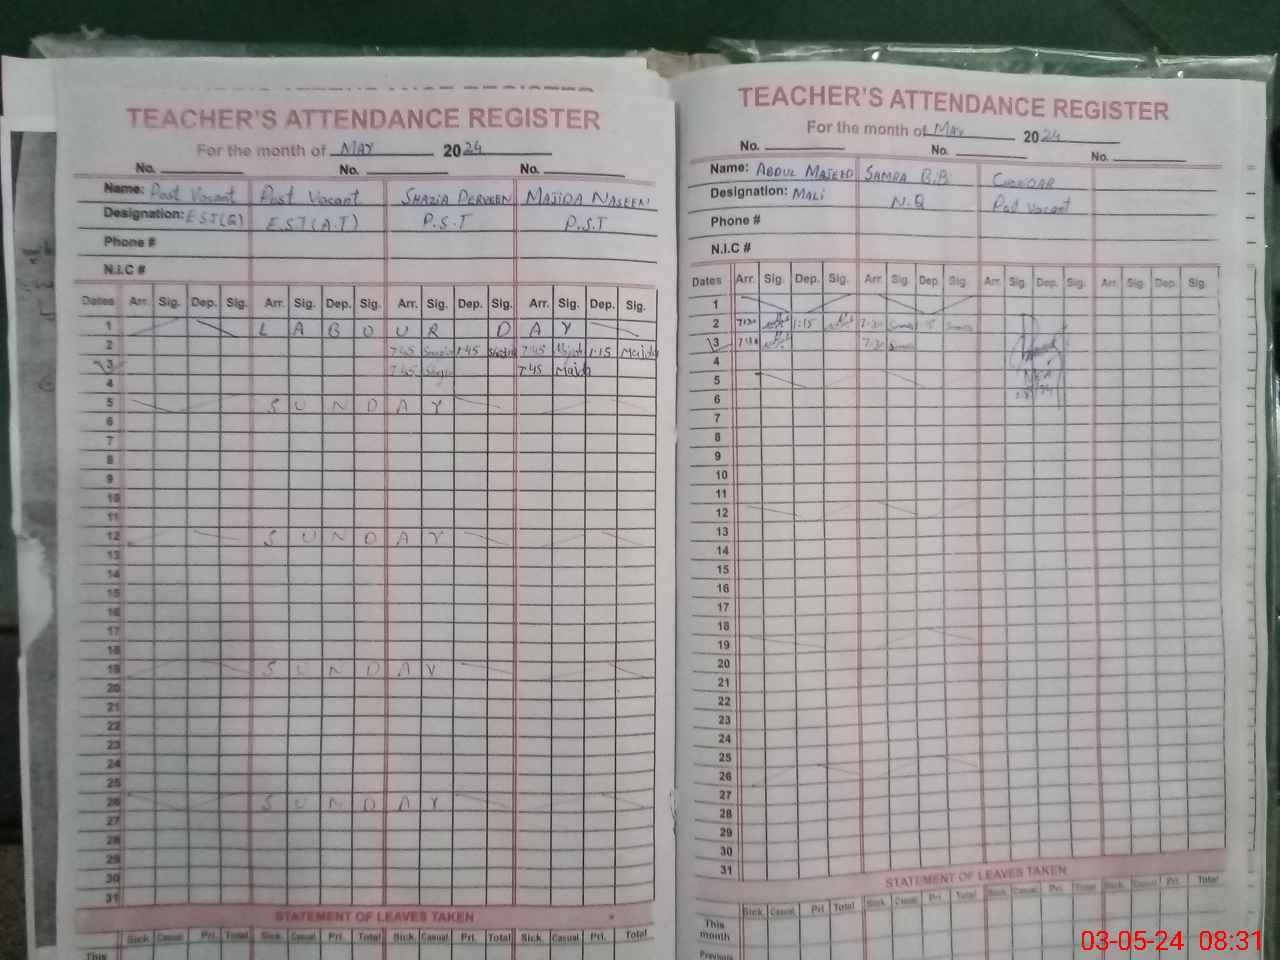 TEACHER'S ATTENDANCE REGISTER
For the month of MAY 2024
No. No. No.
Name: Post Vacant Post Vacant SHAZIA PERVEEN MAJIDA NASEEN
Designation: E.S.T(G) E.S.T(A.T) P.S.T P.S.T
Phone #
N.I.C #
Dates Arr. Sig. Dep. Sig. Arr. Sig. Dep. Sig. Arr. Sig. Dep. Sig. Arr. Sig. Dep. Sig.
1 L A B O U R D A Y
2 7:45 1:45 Shazia 7:45 Majida 1:15 Majida
3 7:45 7:45 Majida
4
5 S U N D A Y
6
7
8
9
10
11
12 S U N D A Y
13
14
15
16
17
18
19 S U N D A Y
20
21
22
23
24
25
26 S U N D A Y
27
28
29
30
31
STATEMENT OF LEAVES TAKEN
Sick. Casual Pri. Total Sick. Casual Pri. Total Sick. Casual Pri. Total Sick. Casual Pri. Total
This
TEACHER'S ATTENDANCE REGISTER
For the month of May 2024
No. No. No.
Name: ABDUL MAJEED SAMRA B.B
Designation: MALI N.Q Post Vacant
Phone #
N.I.C #
Dates Arr. Sig. Dep. Sig. Arr. Sig. Dep. Sig. Arr. Sig. Dep. Sig. Arr. Sig. Dep. Sig.
1
2 7:30 1:15 7:30
3 7:30 7:30
4
5
6
7
8
9
10
11
12
13
14
15
16
17
18
19
20
21
22
23
24
25
26
27
28
29
30
31
STATEMENT OF LEAVES TAKEN
Sick. Casual Pri. Total Sick. Casual Pri. Total Sick. Casual Pri. Total Sick. Casual Pri. Total
This
month
Previous
03-05-24 08:31